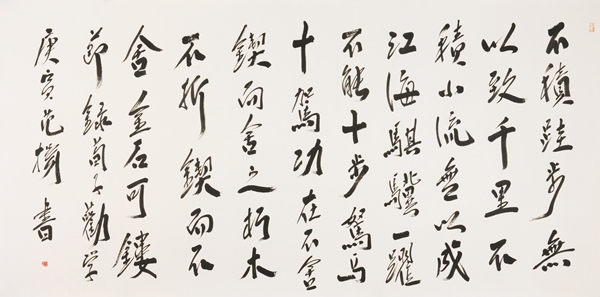 不積跬步無
以致千里不
積小流無以成
江海騏驥一躍
不能十步駑馬
十駕功在不舍
鍥而舍之朽木
不折鍥而不
舍金石可鏤
節録荀子勸学
庚寅范書